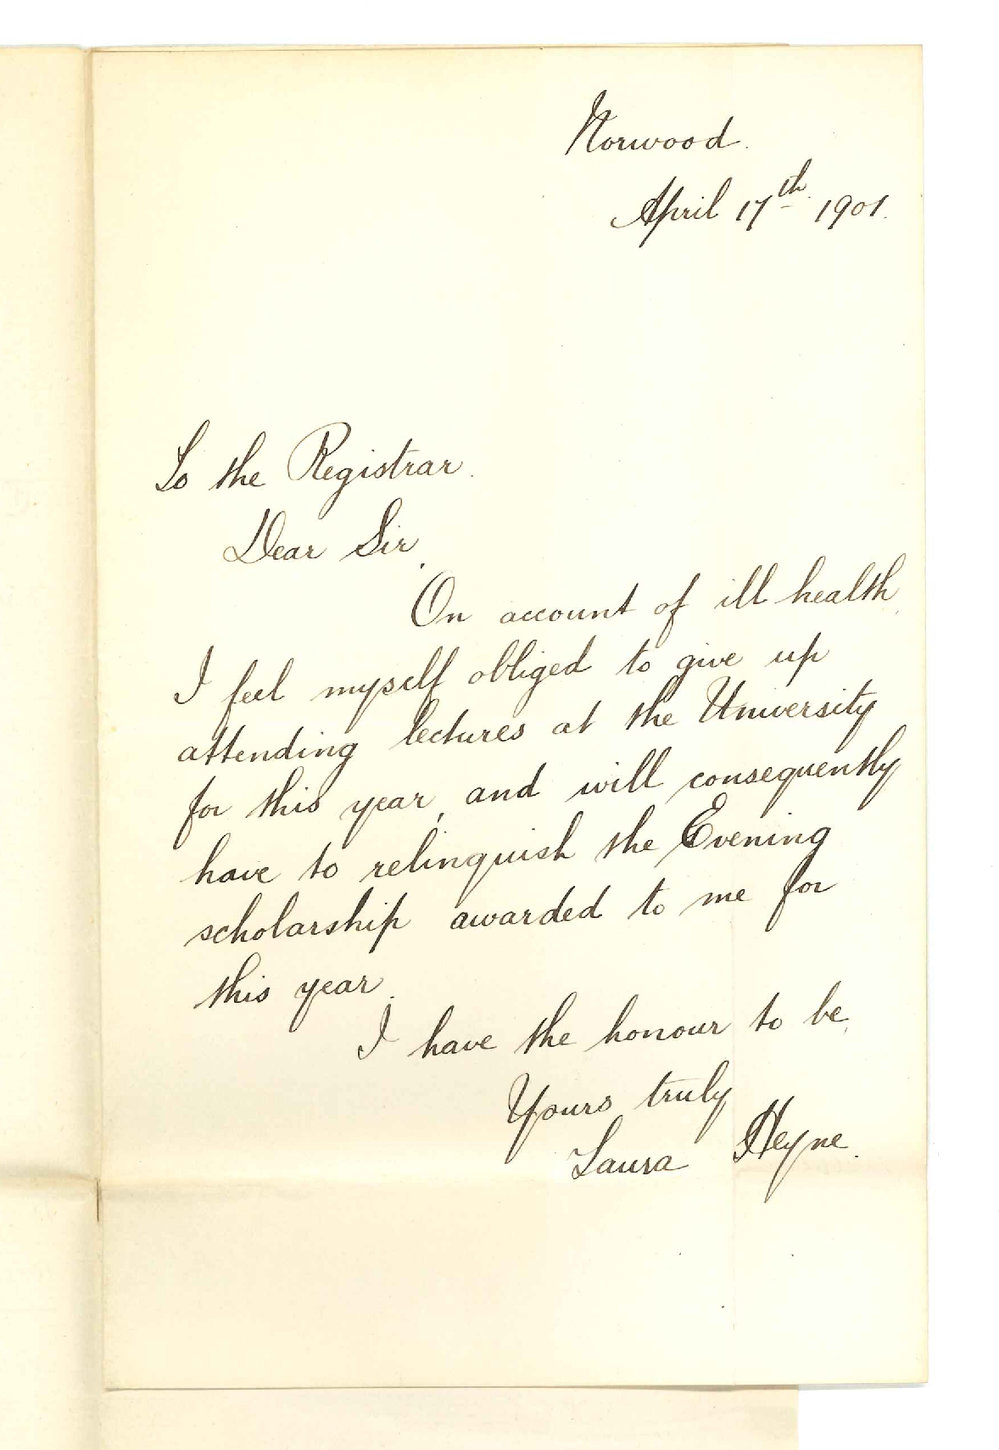 Norwood.
April 17th 1901.
To the Registrar.
Dear Sir,
On account of ill health
I feel myself obliged to give up
attending lectures at the University
for this year, and will consequently
have to relinquish the Evening
scholarship awarded to me for
this year.
I have the honour to be,
Yours truly
Laura Heyne.